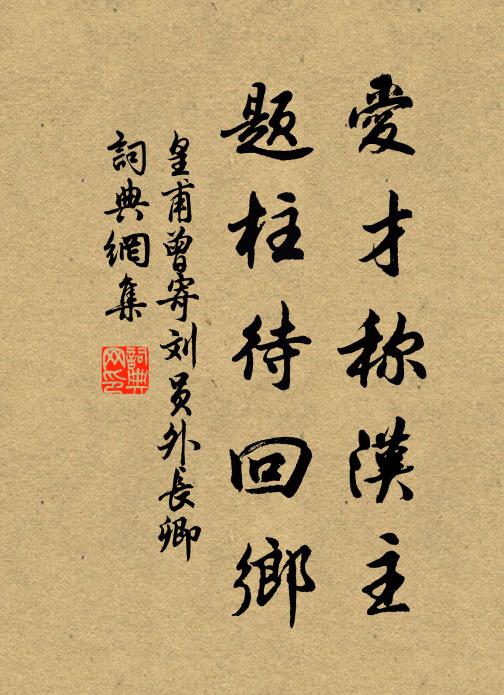 愛才称漢主
题柱待回鄉
皇甫曾寄刘員外長卿
詞典網集
詞典网印